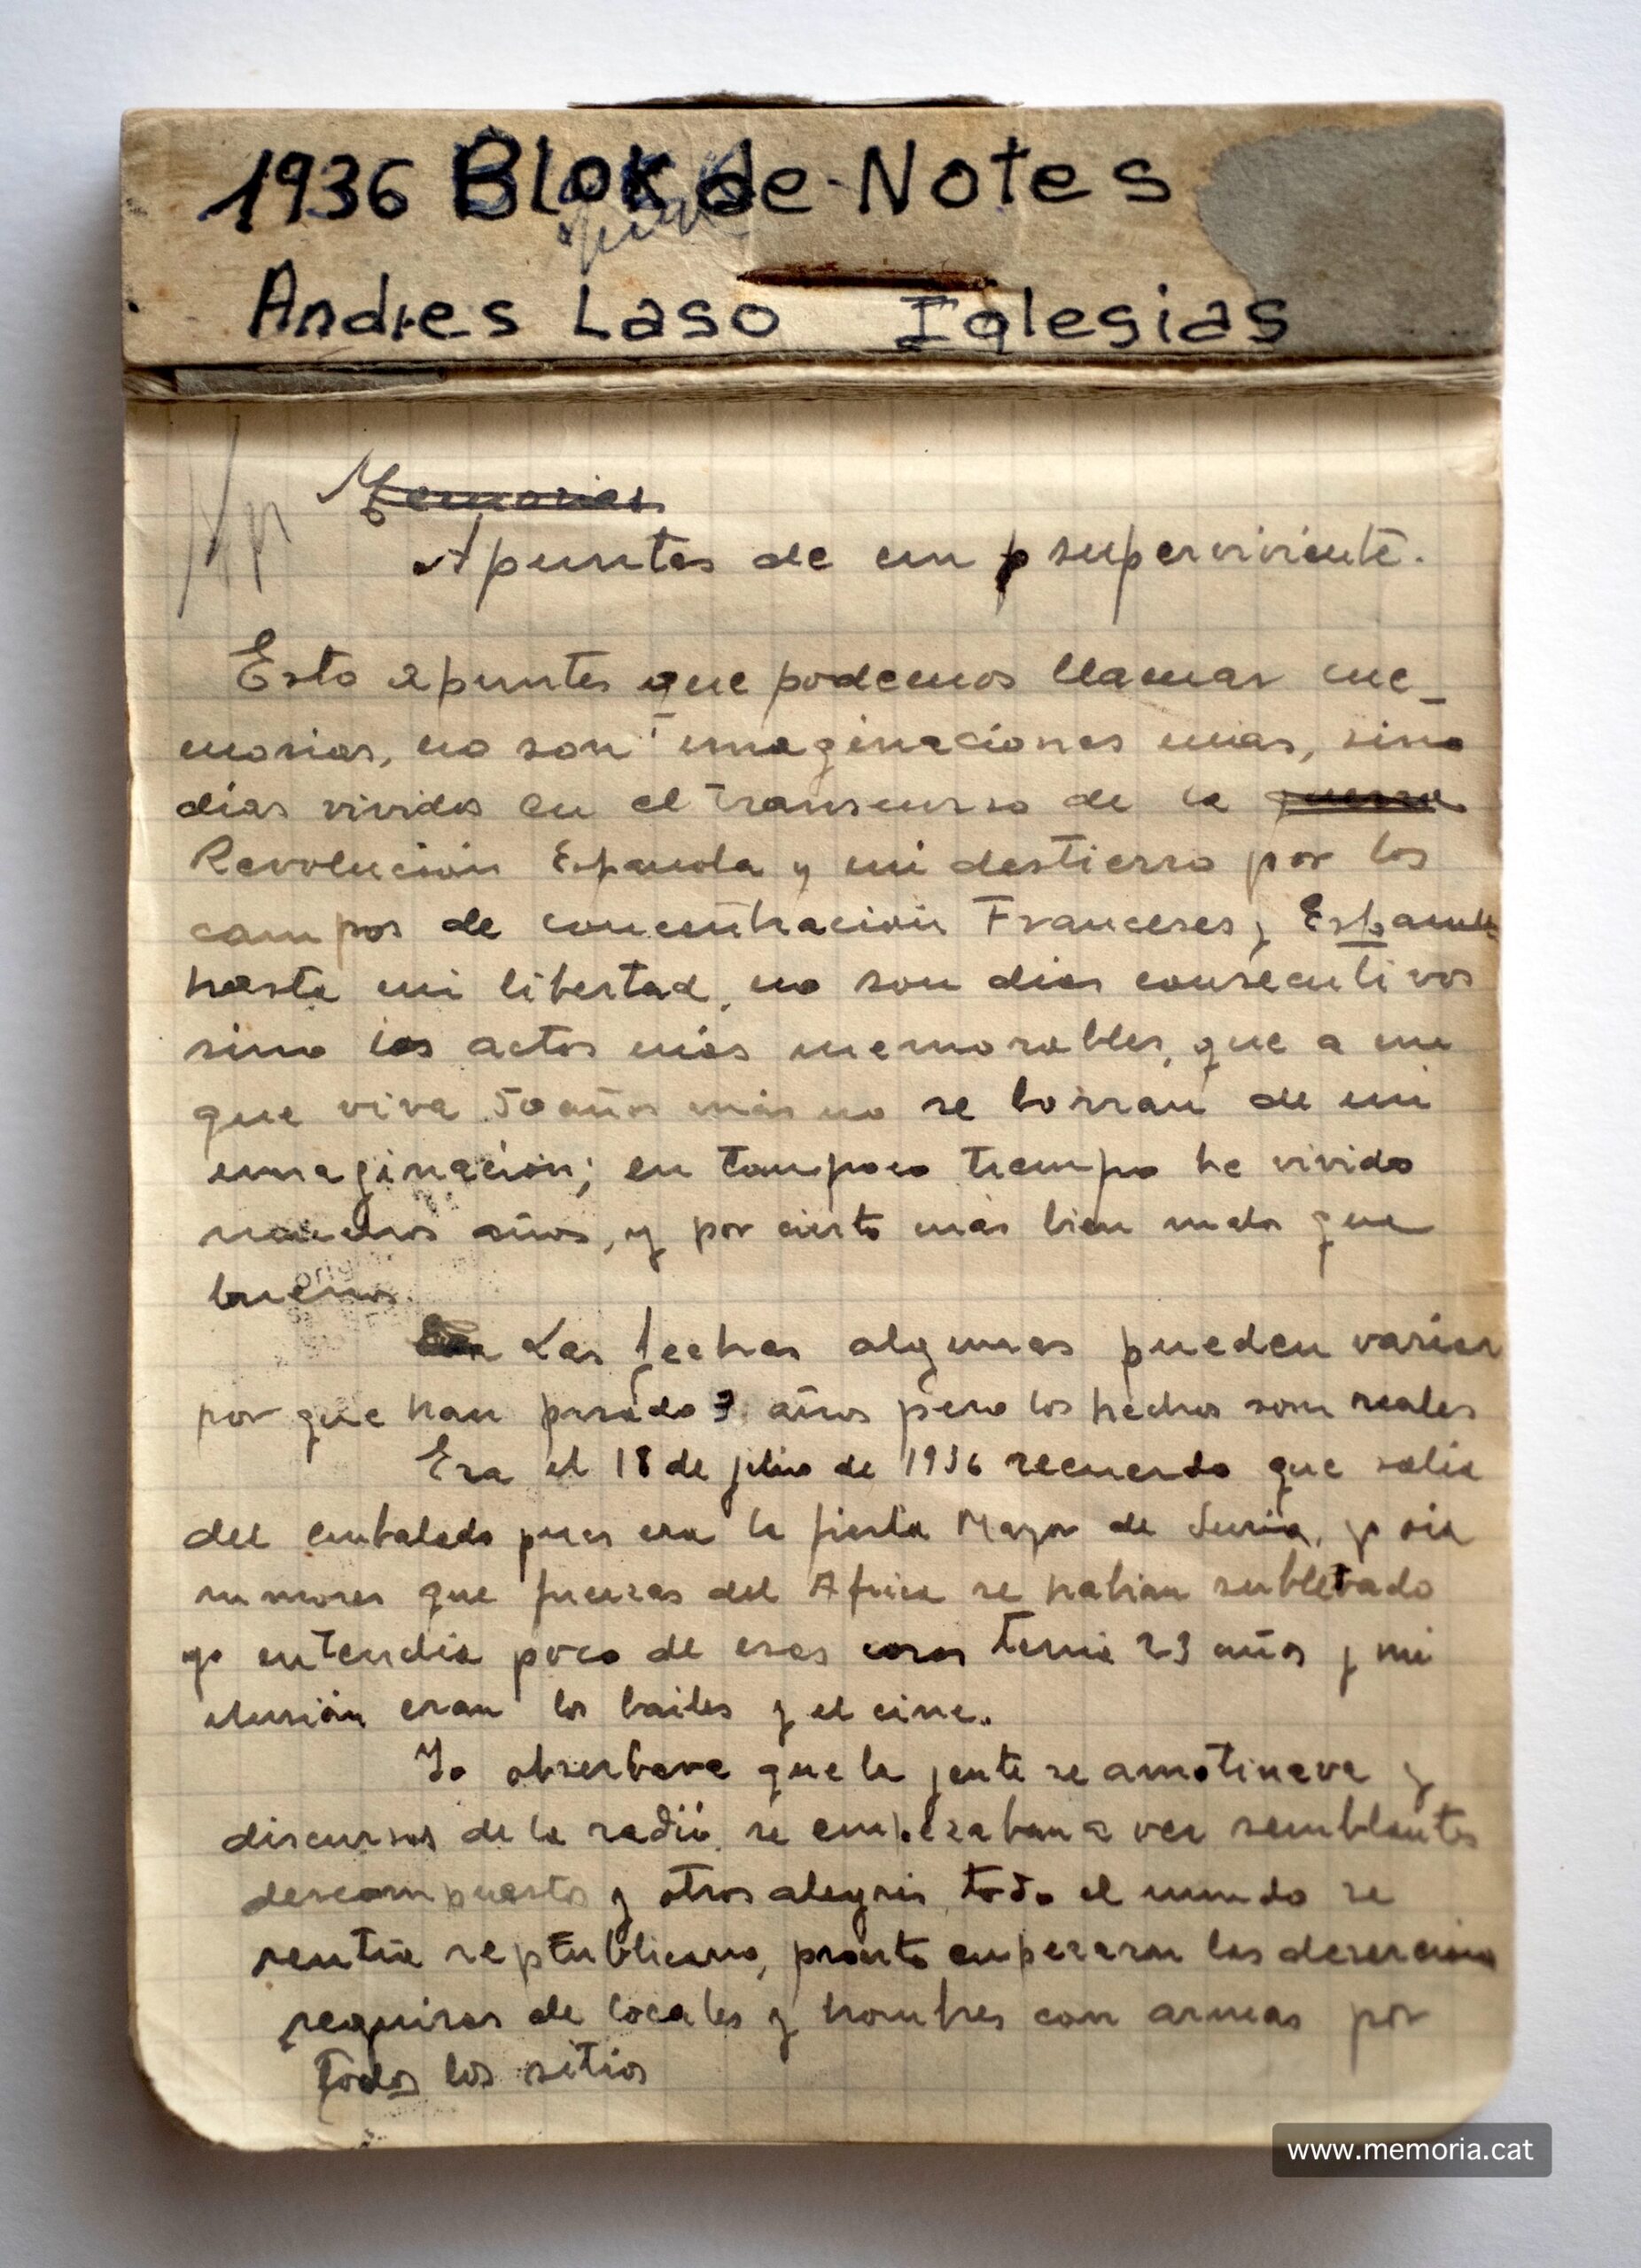 1936 Blok de Notes
Andres Laso Iglesias
Ap
Memorias
Apuntes de un superviviente.
Esto apuntes que podemos llamar me_
morias, no son imaginaciones mias, sino
dias vividos en el transcurso de la guerra
Revolución Española y mi destierro por los
campos de concentración Franceses y
hasta mi libertad, no son dias consecutivos
sino los actos más memorables, que a mi
que viva 50 años más no se borran de mi
imaginación; en tampoco tiempo he vivido
muchos años, y por cierto más bien malos que
buenos.
Las fechas algunas pueden variar
por que han pasado 3 años pero los hechos son reales
Era el 18 de julio de 1936 recuerdo que salia
del embalado pues era la fiesta Mayor de Suria, y oia
rumores que fuerzas del Africa se habian sublebado
yo entendia poco de esas cosas tenia 23 años y mi
ilusión eran los bailes y el cine.
Yo obserbava que la jente se amotinava y
discursos de la radio, se empezaban a ver semblantes
descompuestos y otros alegres, todo el mundo se
sentia republicano, pronto empezaron las
requisas de locales y hombres con armas por
todos los sitios
www.memoria.cat